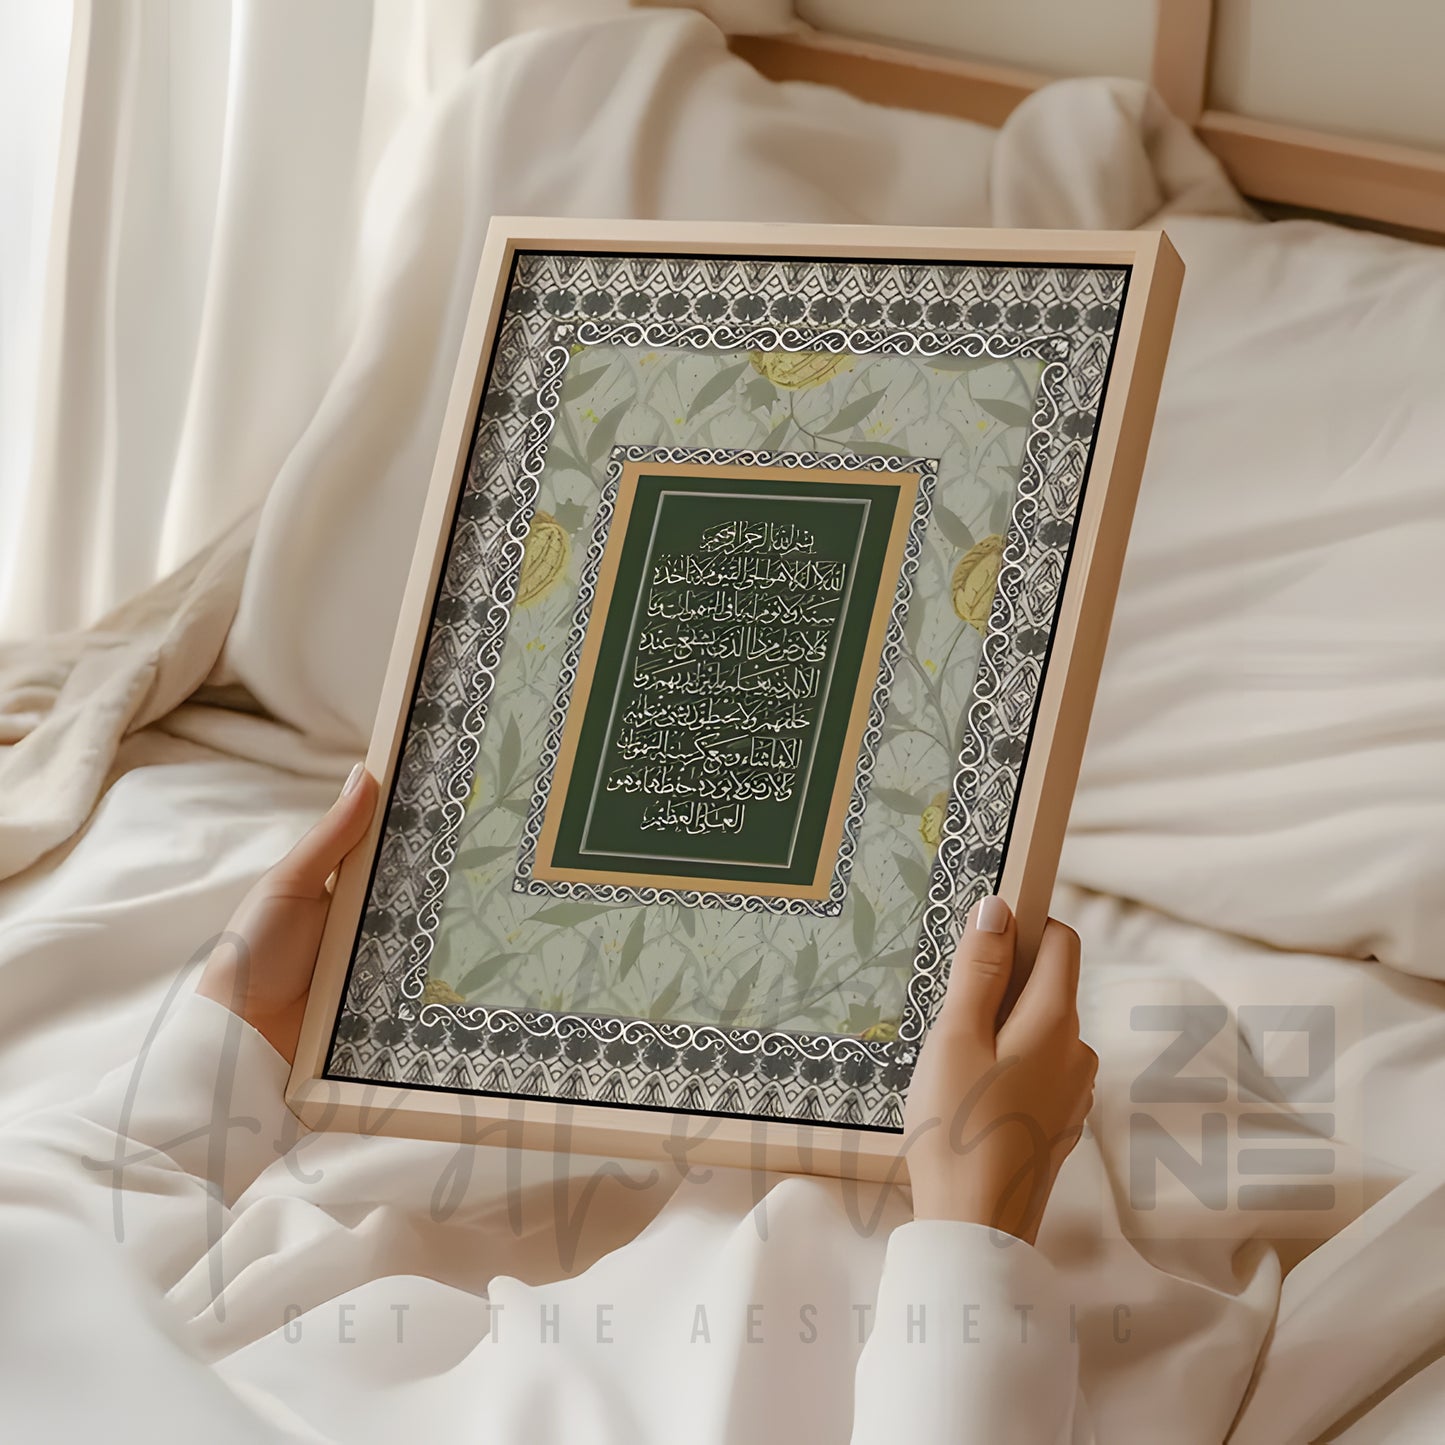 بسم الله الرحمن الرحيم
الله لا اله الا هو الحي القيوم لا تأخذه
سنة ولا نوم له ما في السموات وما
في الارض من ذا الذي يشفع عنده
الا باذنه يعلم ما بين ايديهم وما
خلفهم ولا يحيطون بشيء من علمه
الا بما شاء وسع كرسيه السموات
والارض ولا يؤده حفظهما وهو
العلي العظيم
Aesthetics
ZO
NE
GET THE AESTHETIC